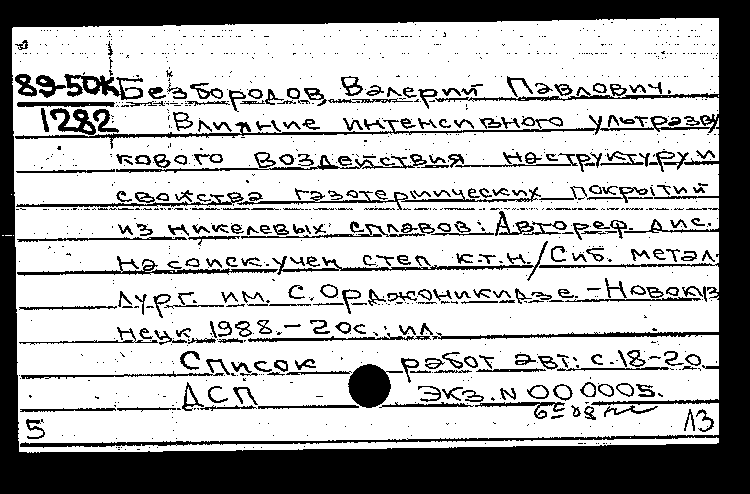 89-50К Безбородов, Валерий Павлович.
1282 Влияние интенсивного ультразву
кового воздействия на структуру и
свойства газотермических покрытий
из никелевых сплавов: Автореф. дис.
на соиск. учен. степ. к.т.н. / Сиб. метал-
лург. им. С. Орджоникидзе. - Новокуз
нецк 1988. - 20с.: ил.
Список работ авт: с. 18-20
ДСП экз. N 000005.
5 13